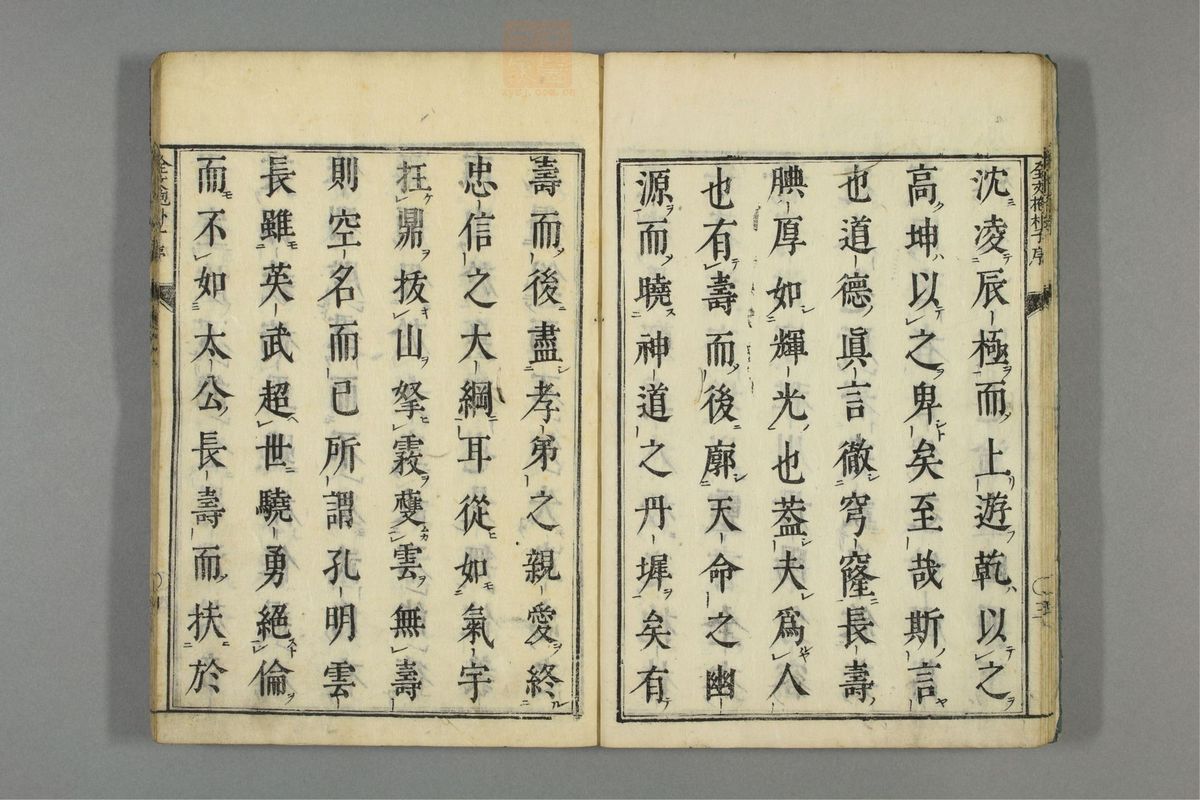 沈凌辰極而上遊乾以之
高坤以之卑矣至哉斯言
也道德眞言徹穹窿長壽
腆厚如輝光也葢夫爲人
也有壽而後廓天命之幽
源而曉神道之丹墀矣有
壽而後盡孝弟之親愛終
忠信之大綱耳從如氣宇
扛鼎拔山拏霧雙雲無壽
則空名而已所謂孔明雲
長雖英武超世驍勇絕倫
而不如太公長壽而扶於